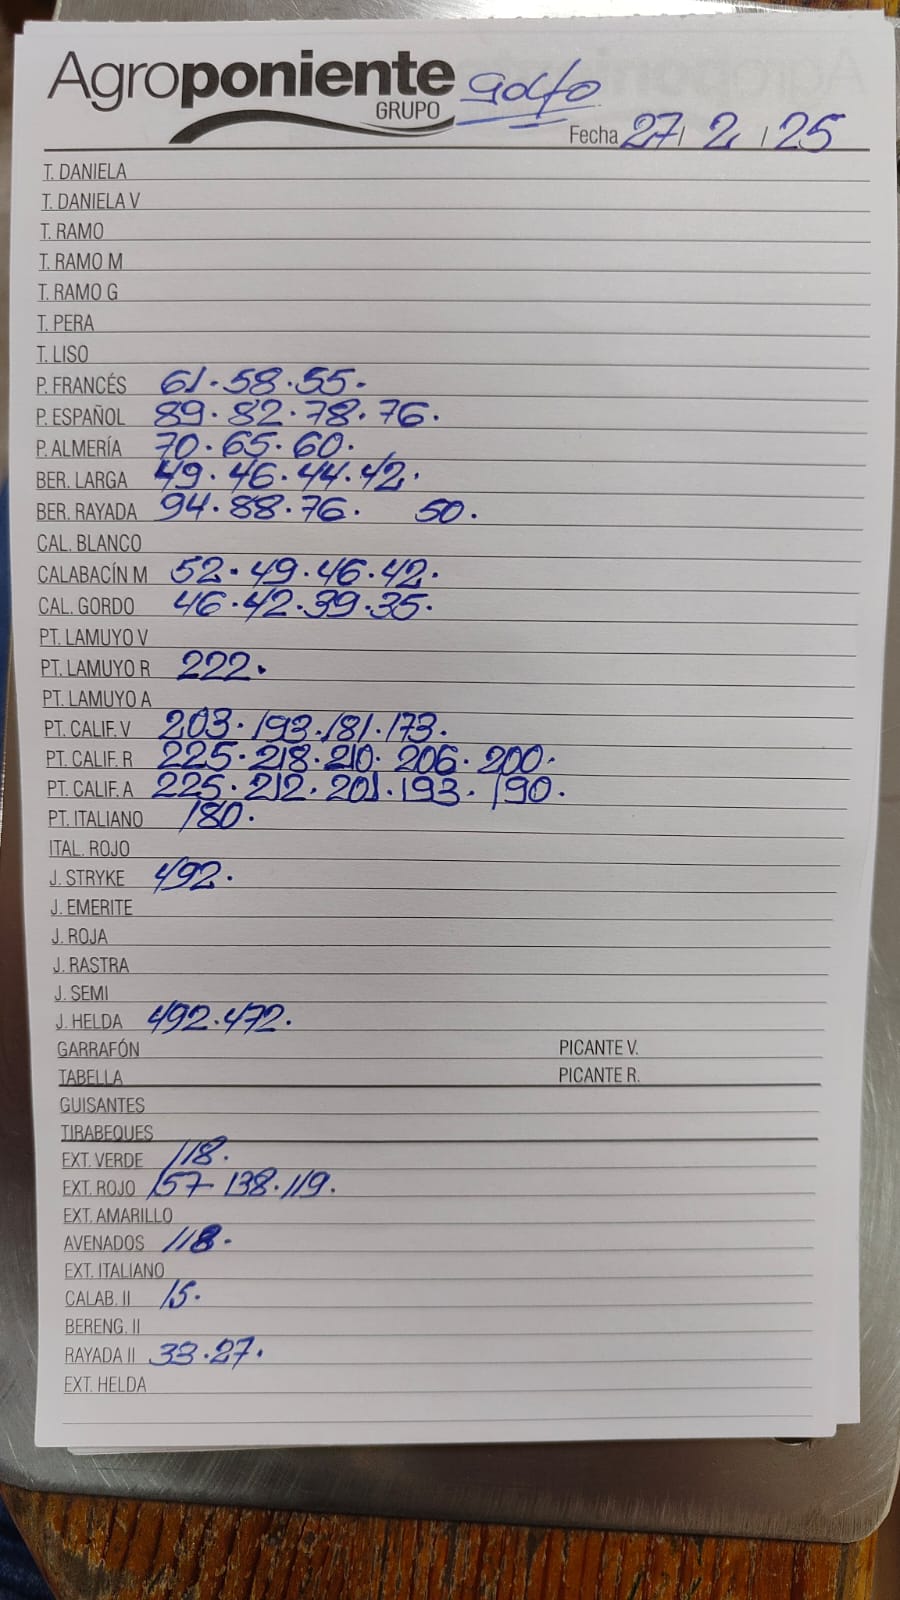 Agroponiente golfo
GRUPO
Fecha 27/ 2 / 25
T. DANIELA
T. DANIELA V
T. RAMO
T. RAMO M
T. RAMO G
T. PERA
T. LISO
P. FRANCÉS 61.58.55.
P. ESPAÑOL 89.82.78.76.
P. ALMERÍA 70.65.60.
BER. LARGA 49.46.44.42.
BER. RAYADA 94.88.76. 50.
CAL. BLANCO
CALABACÍN M 52.49.46.42.
CAL. GORDO 46.42.39.35.
PT. LAMUYO V
PT. LAMUYO R 222.
PT. LAMUYO A
PT. CALIF. V 203.193.181.173.
PT. CALIF. R 225.218.210.206.200.
PT. CALIF. A 225.212.201.193.190.
PT. ITALIANO 180.
ITAL. ROJO
J. STRYKE 492.
J. EMERITE
J. ROJA
J. RASTRA
J. SEMI
J. HELDA 492.472.
GARRAFÓN PICANTE V.
TABELLA PICANTE R.
GUISANTES
TIRABEQUES
EXT. VERDE 118.
EXT. ROJO 157-138.119.
EXT. AMARILLO
AVENADOS 118.
EXT. ITALIANO
CALAB. II 15.
BERENG. II
RAYADA II 33.27.
EXT. HELDA